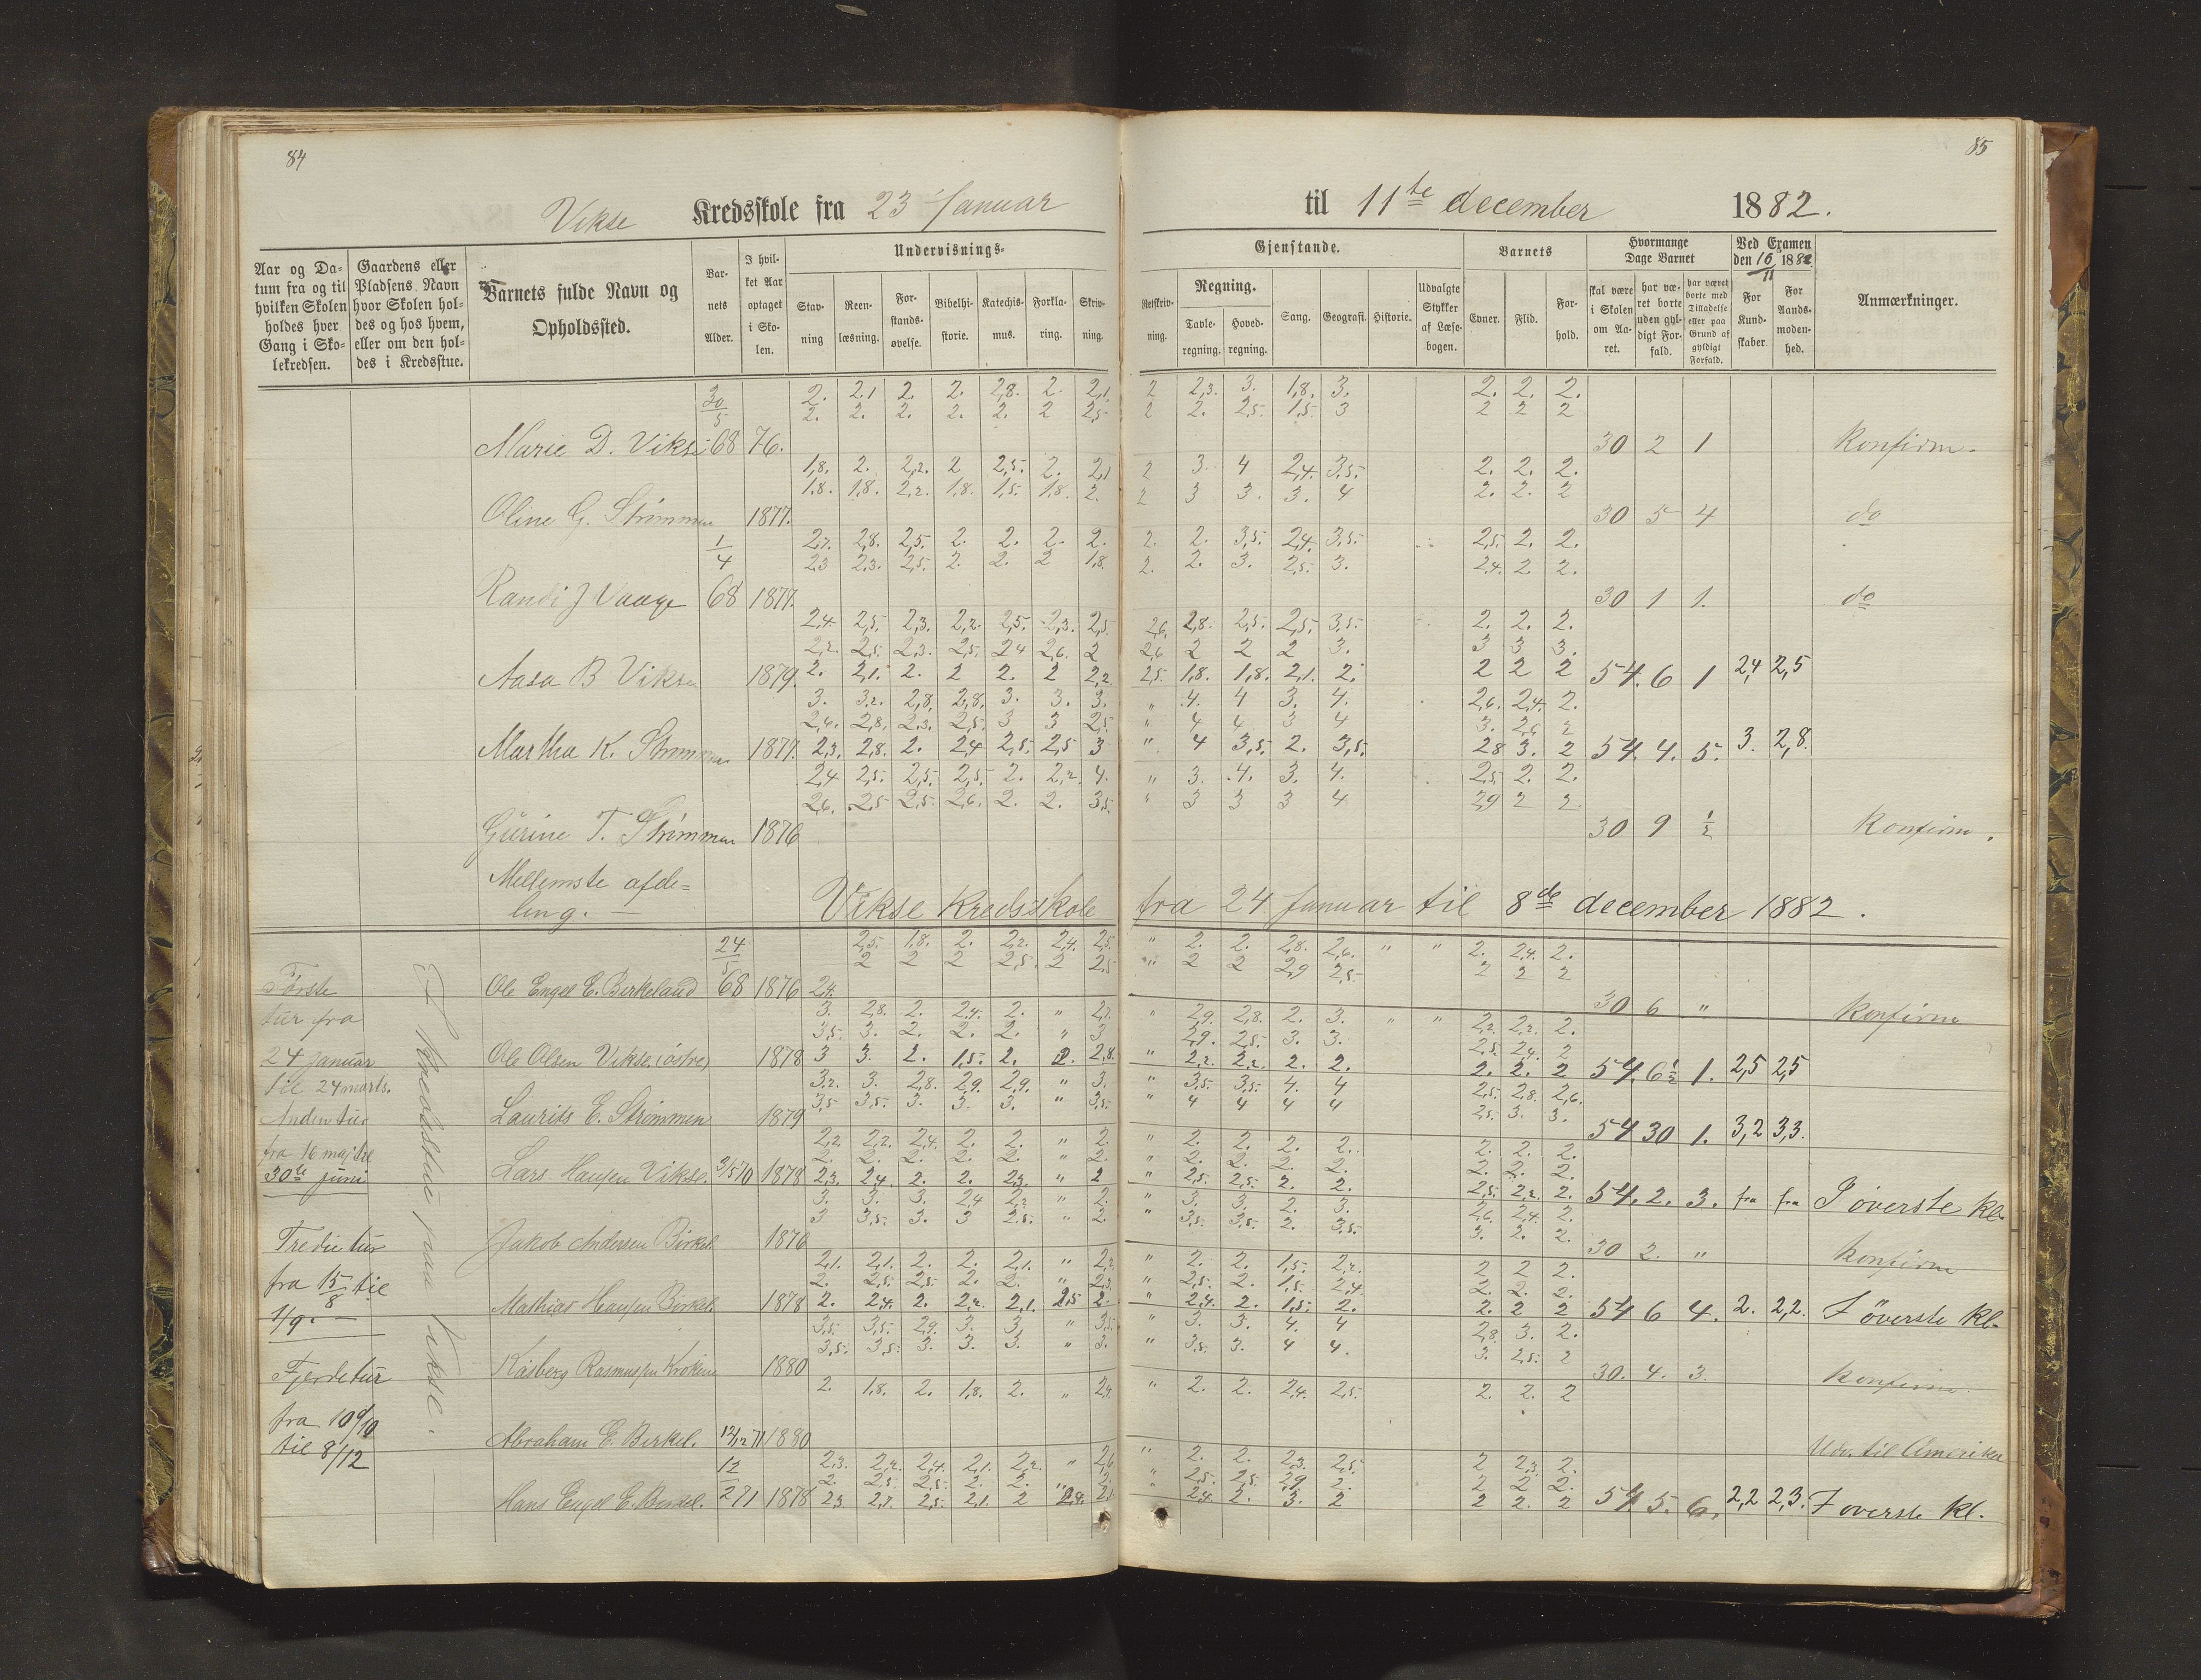 84
85
Vikse Kredsskole fra 23 Januar til 11te december 1882.
Aar og Datum fra og til hvilken Skolen holdes hver Gang i Skolekredsen.
Gaardens eller Pladsens Navn hvor Skolen holdes og hos hvem, eller om den holdes i Kredsstue.
Barnets fulde Navn og Opholdssted.
Barnets Alder.
I hvilket Aar optaget i Skolen.
Undervisnings-Gjenstande.
Stavning
Reenlæsning.
Forstandsøvelse.
Bibelhistorie.
Katechismus.
Forklaring.
Skrivning.
Retskrivning.
Regning.
Tavleregning.
Hovedregning.
Sang.
Geografi.
Historie.
Udvalgte Stykker af Læsebogen.
Barnets
Evner.
Flid.
Forhold.
Hvormange Dage Barnet
skal være i Skolen om Aaret.
har været borte uden gyldigt Forfald.
har været borte med Tilladelse eller paa Grund af gyldigt Forfald.
Ved Examen den 16/11 1882
For Kundskaber.
For Aandsmodenhed.
Anmærkninger.
30/5 2. 2.1 2. 2. 2,8. 2. 2,1 2 2,3. 3. 1,8. 3. 2. 2. 2.
2. 2. 2. 2. 2. 2 2,5 2 2. 2,5. 1,5. 3 2 2 2
Marie D. Vikse 68 76. 30 2 1 Konfirm.
1,8. 2. 2,2. 2 2,5. 2. 2,1 2 3. 4 2,4. 3,5. 2. 2. 2.
1,8. 1,8. 2,2. 1,8. 1,5. 1,8. 2. 2 3 3. 3. 4 2. 2. 2
Oline G. Strømmen 1877. 30 5 4 do
1/4 2,7. 2,8. 2,5. 2. 2. 2. 2. 2. 2. 3,5. 2,4. 3,5. 2,5. 2. 2.
2,3 2,3. 2,5. 2. 2. 2 1,8. 2. 2. 3. 2,5. 3. 2,4. 2 2.
Randi J Vaage 68 1877. 30 1 1. do
2,4. 2,5. 2,3. 2,2. 2,5. 2,3. 2,5. 2,6. 2,8. 2,5. 2,5. 3,5. 2. 2. 2.
2,2. 2,5. 2,3. 2,5. 2,4 2,6. 2 2,6 2 2 2 3. 3 3 3.
Aasa B Vikse 1879. 2. 2,1. 2. 2 2. 2 2,2 2,5. 1,8. 1,8. 2,1. 2. 2 2 2 54. 6 1 2,4 2,5
3. 3,2. 2,8. 2,8. 3. 3. 3. " 4. 4 3. 4. 2,6. 2,4. 2.
2,6. 2,8. 2,3. 2,5. 3 3 2,5. " 4 4 3 4 3. 2,6 2
Martha K. Strømmen 1877. 2,3. 2,8. 2. 2,4 2,5. 2,5 3 " 4 3,5. 2. 3,5. 2,8 3. 2 54. 4. 5. 3. 2,8.
2,4 2,5. 2,5. 2,5. 2. 2,2. 4. " 3. 4. 3. 4. 2,5. 2. 2.
2,6. 2,5 2,5. 2,6. 2. 2. 3,5. " 3 3 3 4 2,9 2 2.
Gurine T. Strømmen 1876 30 9 1/2 Konfirm.
Mellemste afdeling. —
Vikse Kredsskole fra 24 Januar til 8de december 1882.
24/5 2,5. 1,8. 2. 2,2. 2,4. 2,5. " 2. 2. 2,8. 2,6. " " 2. 2,4. 2.
2 2 2 2,5. 2 2,5 " 2 2 2,9 2,5. 2 2 2
Ole Engel E. Birkeland 68 1876 2,4. 30 6 " Konfirm
3. 2,8. 2. 2,4. 2. " 2,7. " 2,9. 2,8. 2. 3. " " 2,2. 2,2. 2.
3,5. 3. 2. 2. 2. " 3 2,9. 2,5. 3. 3. 2,5. 2,4. 2
Ole Olsen Vikse (østre) 1878 3 3. 2. 1,5. 2. 2. 2,8. " 2,2. 2,2. 2. 2. 2. 2. 2 54. 6½ 1. 2,5 2,5
3,2. 3. 2,8. 2,9. 2,9. " 3. " 3,5. 3,5. 4. 4 2,5. 2,8. 2,6.
3,5 3,5. 3. 3. 3. " 3,5. " 4 4 4 4 2,5. 3. 3.
Laurits E. Strømmen 1879 54 30 1. 3,2 3,3.
2,2 2,2. 2,4. 2. 2. " 2. " 2. 2. 2. 2. 2. 2. 2.
2. 2. 2. 2. 2. " 2. " 2. 2. 2. 2. 2. 2. 2.
Lars Hansen Vikse. 3/5 70 1878 2,3. 2,4. 2. 2. 2,3. " 2 " 2,5. 2,5. 2. 2. 2,5. 2,2. 2. 54. 2. 3. fra fra I øverste kl.
3. 3. 3. 2,4 2,2 " 2. " 3. 3. 2. 3. 2,6. 2,4. 2.
3 3,5. 3. 3 2,5. " 2. " 3,5. 3,5. 2. 3,5. 3. 2. 2.
Jakob Andersen Birkel. 1876 30 2. " Konfirm
2,1. 2,1. 2. 2. 2,1. " 2,2 " 2. 2. 1,5. 2,2. 2 2 2.
2. 2,5. 2,5. 2. 2. " 2,3. " 2,5. 2. 1,5. 2,4. 2. 2. 2.
Mathias Hansen Birkel. 1878 2. 2,4. 2. 2,2. 2,1. 2,5 2. " 2,4. 2. 1,5. 2. 2. 2 2 54 6 4. 2. 2,2. I øverste kl.
3,5. 3,5. 2,9. 3. 3. " 3,5. " 3. 3. 4. 4 2,8. 3. 2.
3,5. 3,5. 3. 3. 3. " 3. " 3,5. 3. 4 4. 3. 2,5. 2
Rasmussen 1880 30. 4. 3. Konfirm.
2. 1,8. 2. 1,8. 2. " 2,4 " 2. 2. 2,4. 2,5. 2. 2. 2
Abraham E. Birkel. 12/12 71 1880 Udv. til Amerika
12 2,3. 2,2. 2,4. 2,1. 2,2. " 2,6 " 2. 2. 2,3. 2,5. 2 2,3. 2.
2. 2,5. 2,5. 2. 2. " 2. " 2,5. 2,5. 2,9 2. 2 2. 2.
Hans Engel E. Birkel. 2 71 1878 2,3 2,7. 2,5. 2,1. 2 2,4. 2,1 " 2,4. 2. 3. 2 2 2. 2 54 5. 6. 2,2 2,3. I øverste kl.
Første
tur fra
24 januar
til 24 marts.
Anden tur
fra 16 maj til
30te juni
Tredie tur
fra 15/8 til
1/9. —
Fjerde tur
fra 10/10
til 8/12
I Kredsstue paa Vikse.